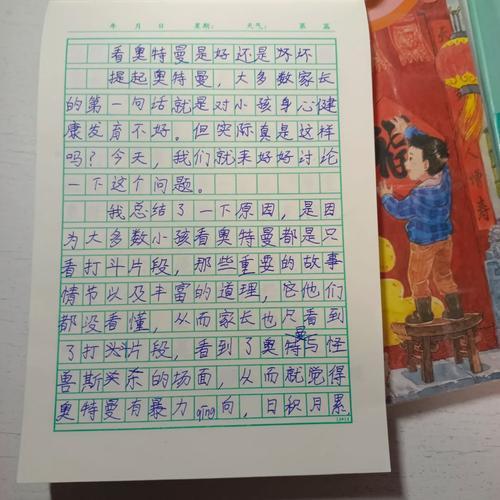 年 月 日 星期： 天气： 第 篇
看奥特曼是好还是坏坏
提起奥特曼，大多数家长
的第一句话就是对小孩身心健
康发育不好。但实际真是这样
吗？今天，我们就来好好讨论
一下这个问题。
我总结了一下原因，是因
为大多数小孩看奥特曼都是只
看打斗片段，那些重要的故事
情节以及丰富的道理，它他们
都没看懂，从而家长也只看到
了打斗片段，看到了奥特曼与怪
兽斯杀的场面，从而就觉得
奥特曼有暴力qīng向，日积月累
福
人增寿